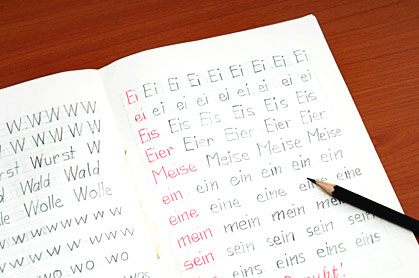 W W W W W
W W W W W
Wurst W
Wald Wald
Wolle Wolle
w w w w w
w w w w w
wo wo
Ei Ei Ei Ei Ei Ei Ei Ei
ei ei ei ei ei ei ei
Eis Eis Eis Eis Eis
Eier Eier Eier Eier Eier
Meise Meise Meise Meise
ein ein ein ein ein
eine eine eine eine eine
mein mein mein mein
sein sein sein sein
eins eins eins eins